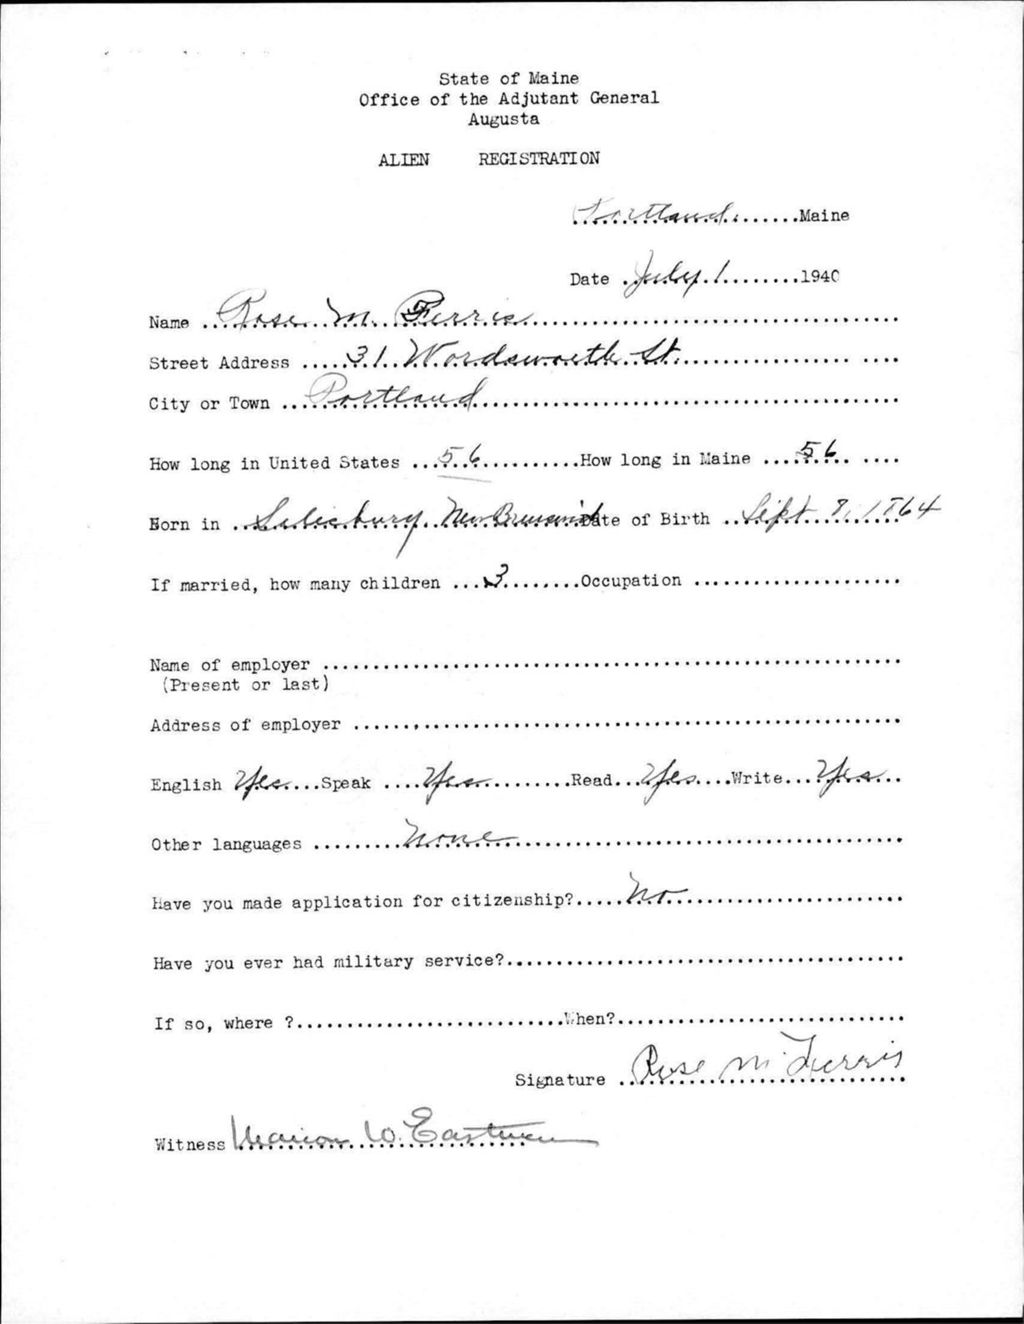 State of Maine
Office of the Adjutant General
Augusta
ALIEN REGISTRATION
Portland.......Maine
Date .July 1........1940
Name ..Rose M. Ferris......................................
Street Address .....31 Wordsworth St....................
City or Town ...Portland..........................................
How long in United States ...56...........How long in Maine ....56.. ....
Born in ..Salisbury New Brunswick Date of Birth ..Sept 8, 1864
If married, how many children ...3........Occupation .....................
Name of employer ..........................................................
(Present or last)
Address of employer .......................................................
English Yes...Speak ....Yes..........Read...Yes....Write...Yes..
Other languages .........None.......................................
Have you made application for citizenship?.....No......................
Have you ever had military service?........................................
If so, where ?...........................When?.............................
Signature ..Rose M Ferris
Witness Marion W. Eastman